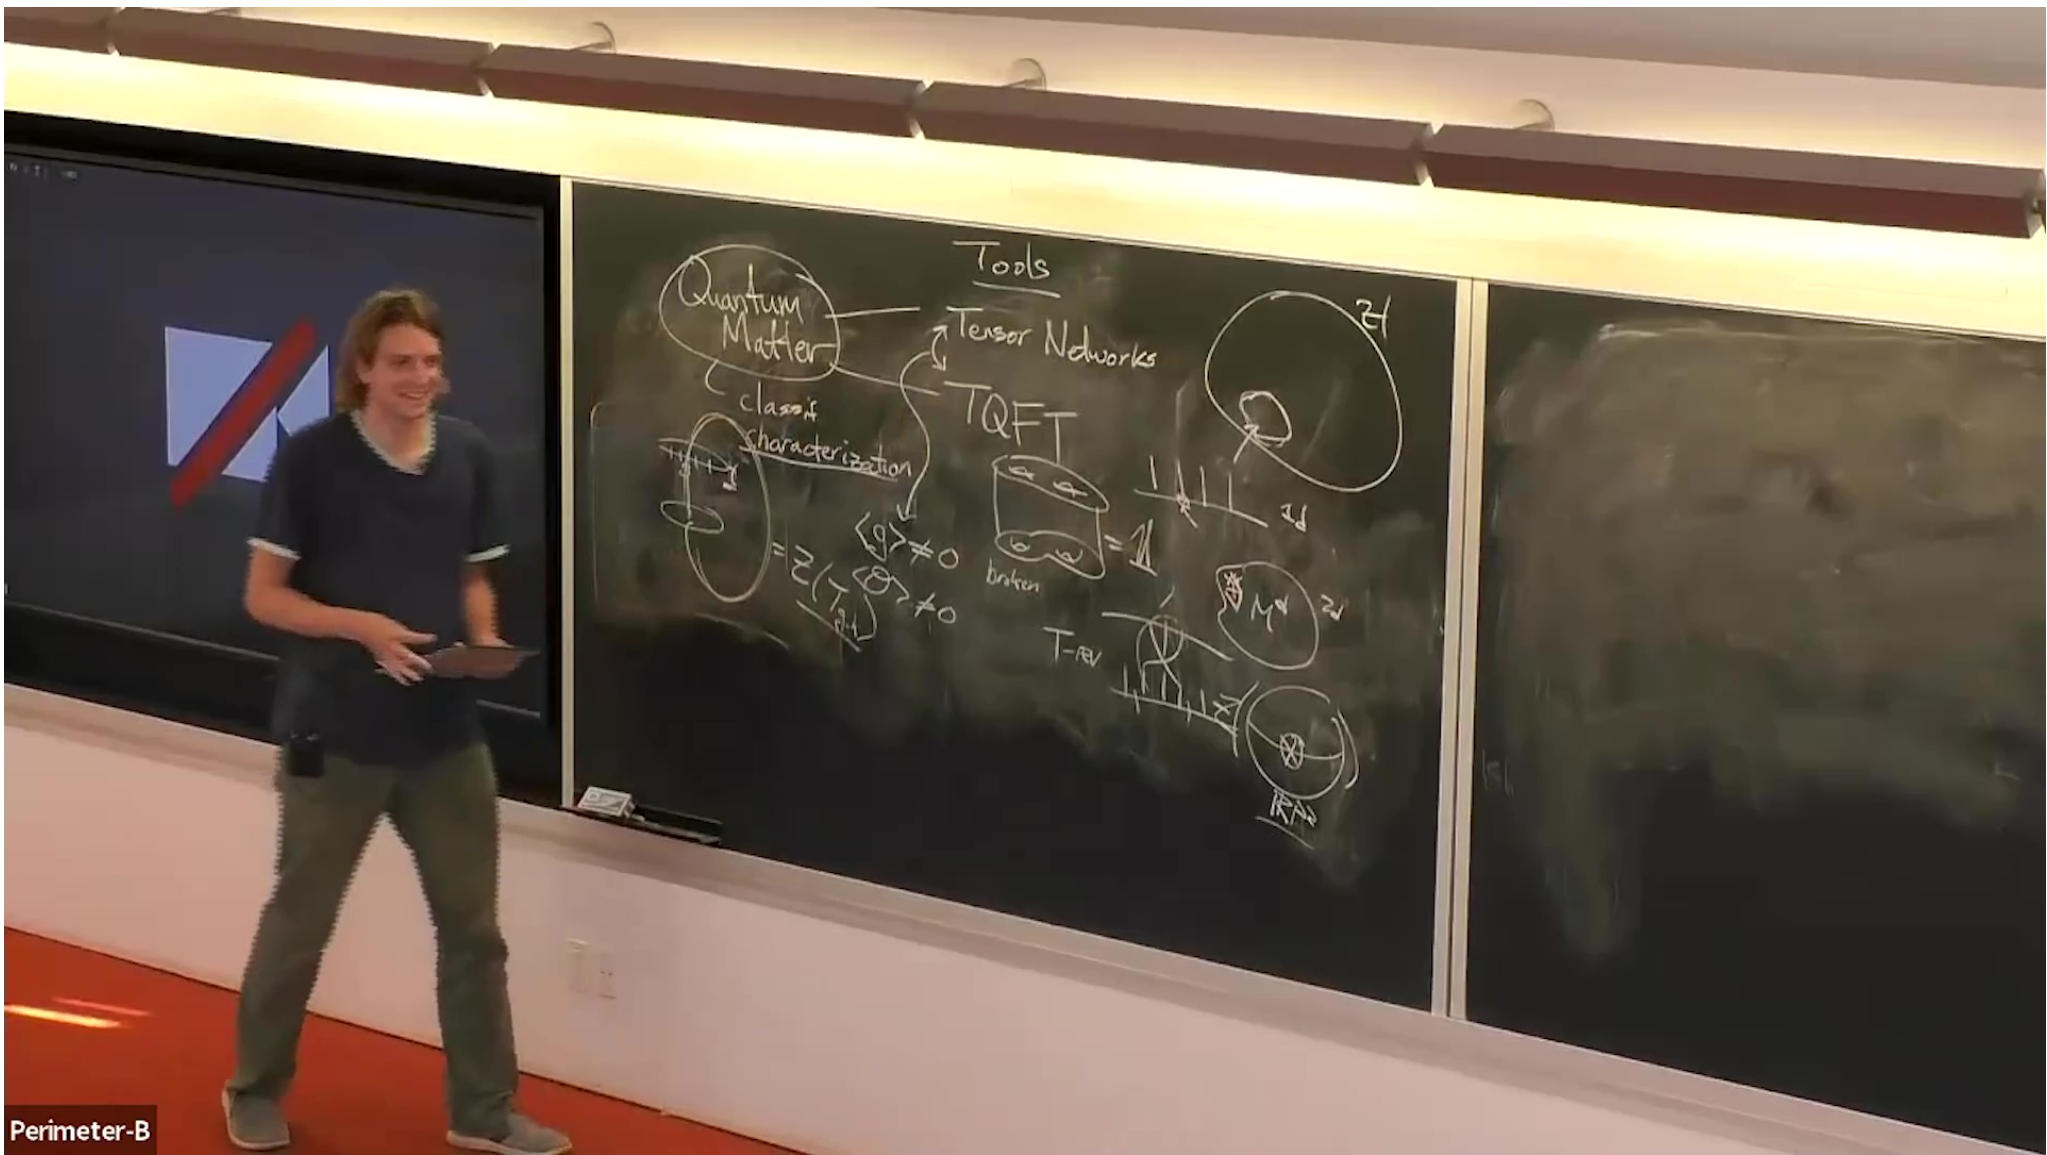 Tools
Quantum
Matter
Tensor Networks
TQFT
classif
characterization
⟨g⟩ ≠ 0
⟨O⟩ ≠ 0
= Z(T
= 𝟙
broken
1d
M
2d
T-rev
Z(
RP2
Perimeter-B